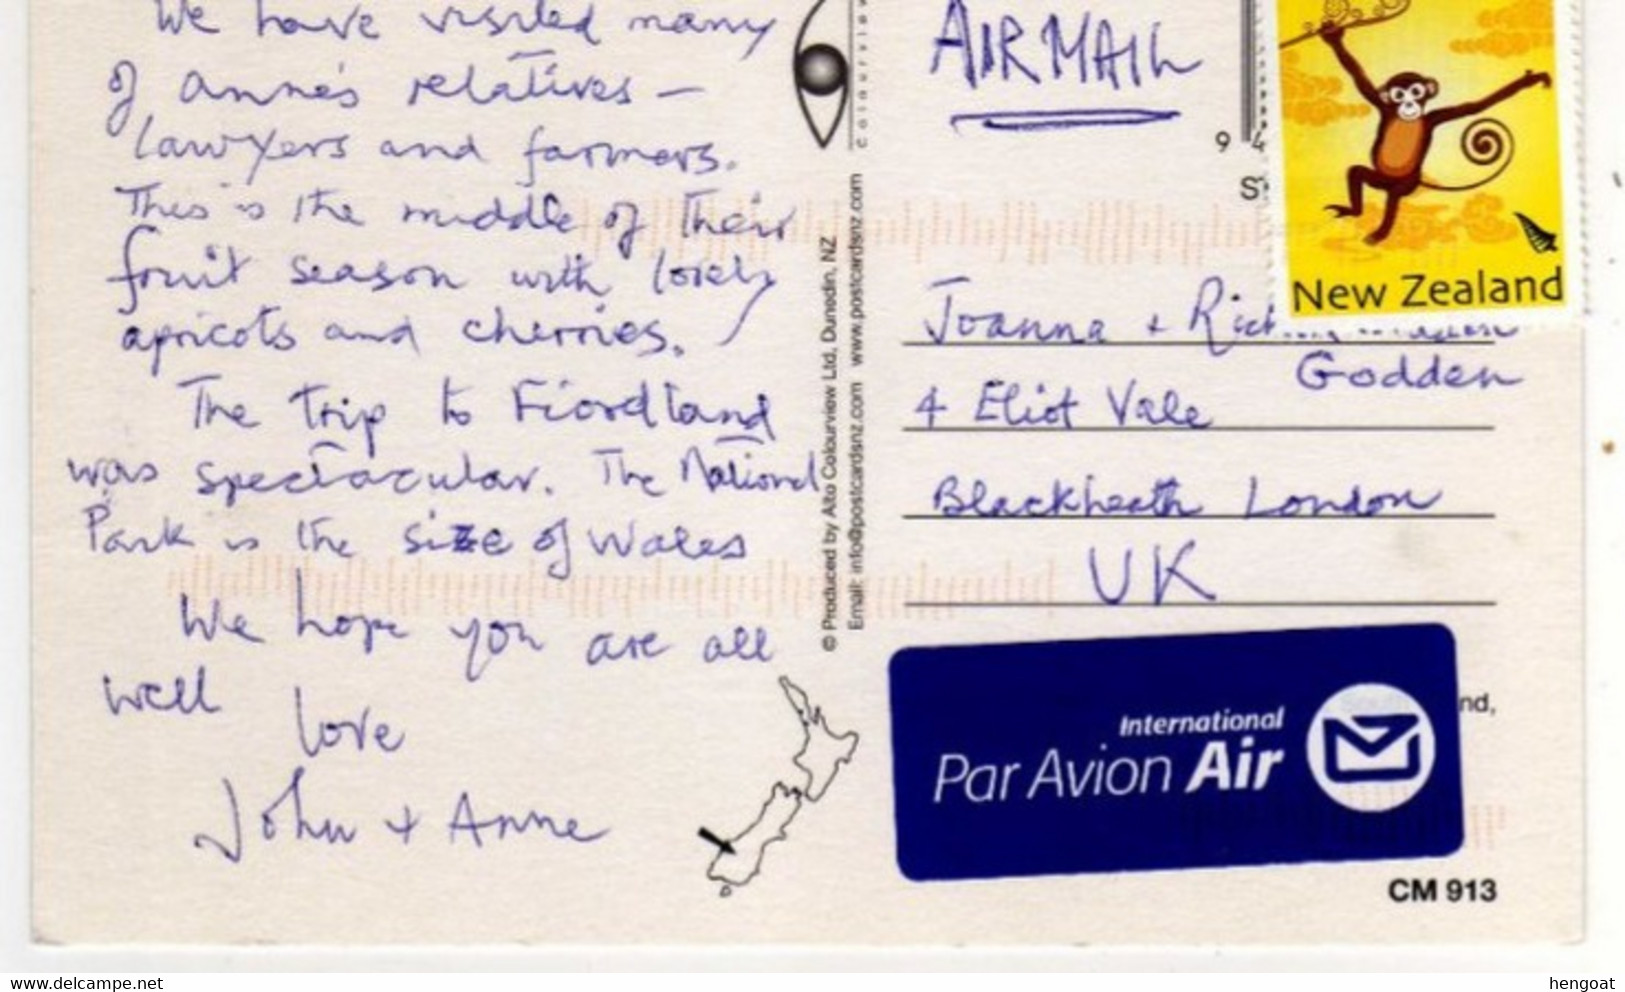 We have visited many
of Anne's relatives –
lawyers and farmers.
This is the middle of their
fruit season with lovely
apricots and cherries.
The trip to Fiordland
was spectacular. The National
Park is the size of Wales
We hope you are all
well
love
John + Anne
colourview
© Produced by Alto Colourview Ltd, Dunedin, NZ
Email: info@postcardsnz.com www.postcardsnz.com
AIRMAIL
9 4
New Zealand
Joanna +
Godden
4 Eliot Vale
Blackheath London
UK
International
Par Avion Air
nd,
CM 913
www.delcampe.net
hengoat